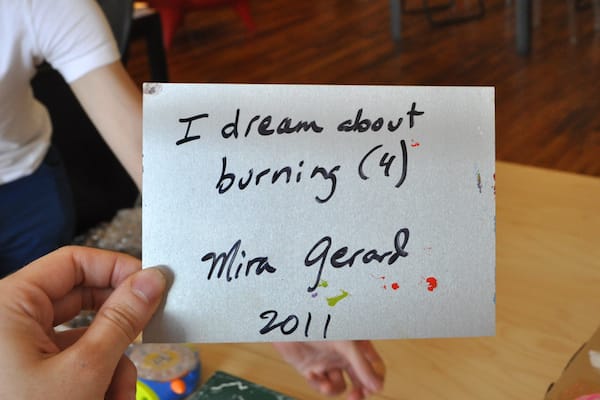 I dream about
burning (4)
Mira Gerard
2011